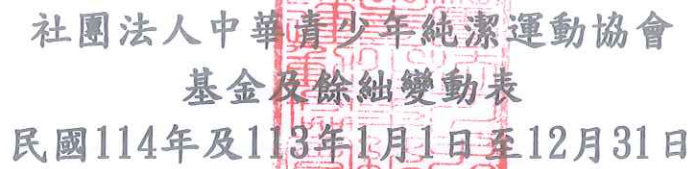 社團法人中華青少年純潔運動協會
基金及餘絀變動表
民國114年及113年1月1日至12月31日